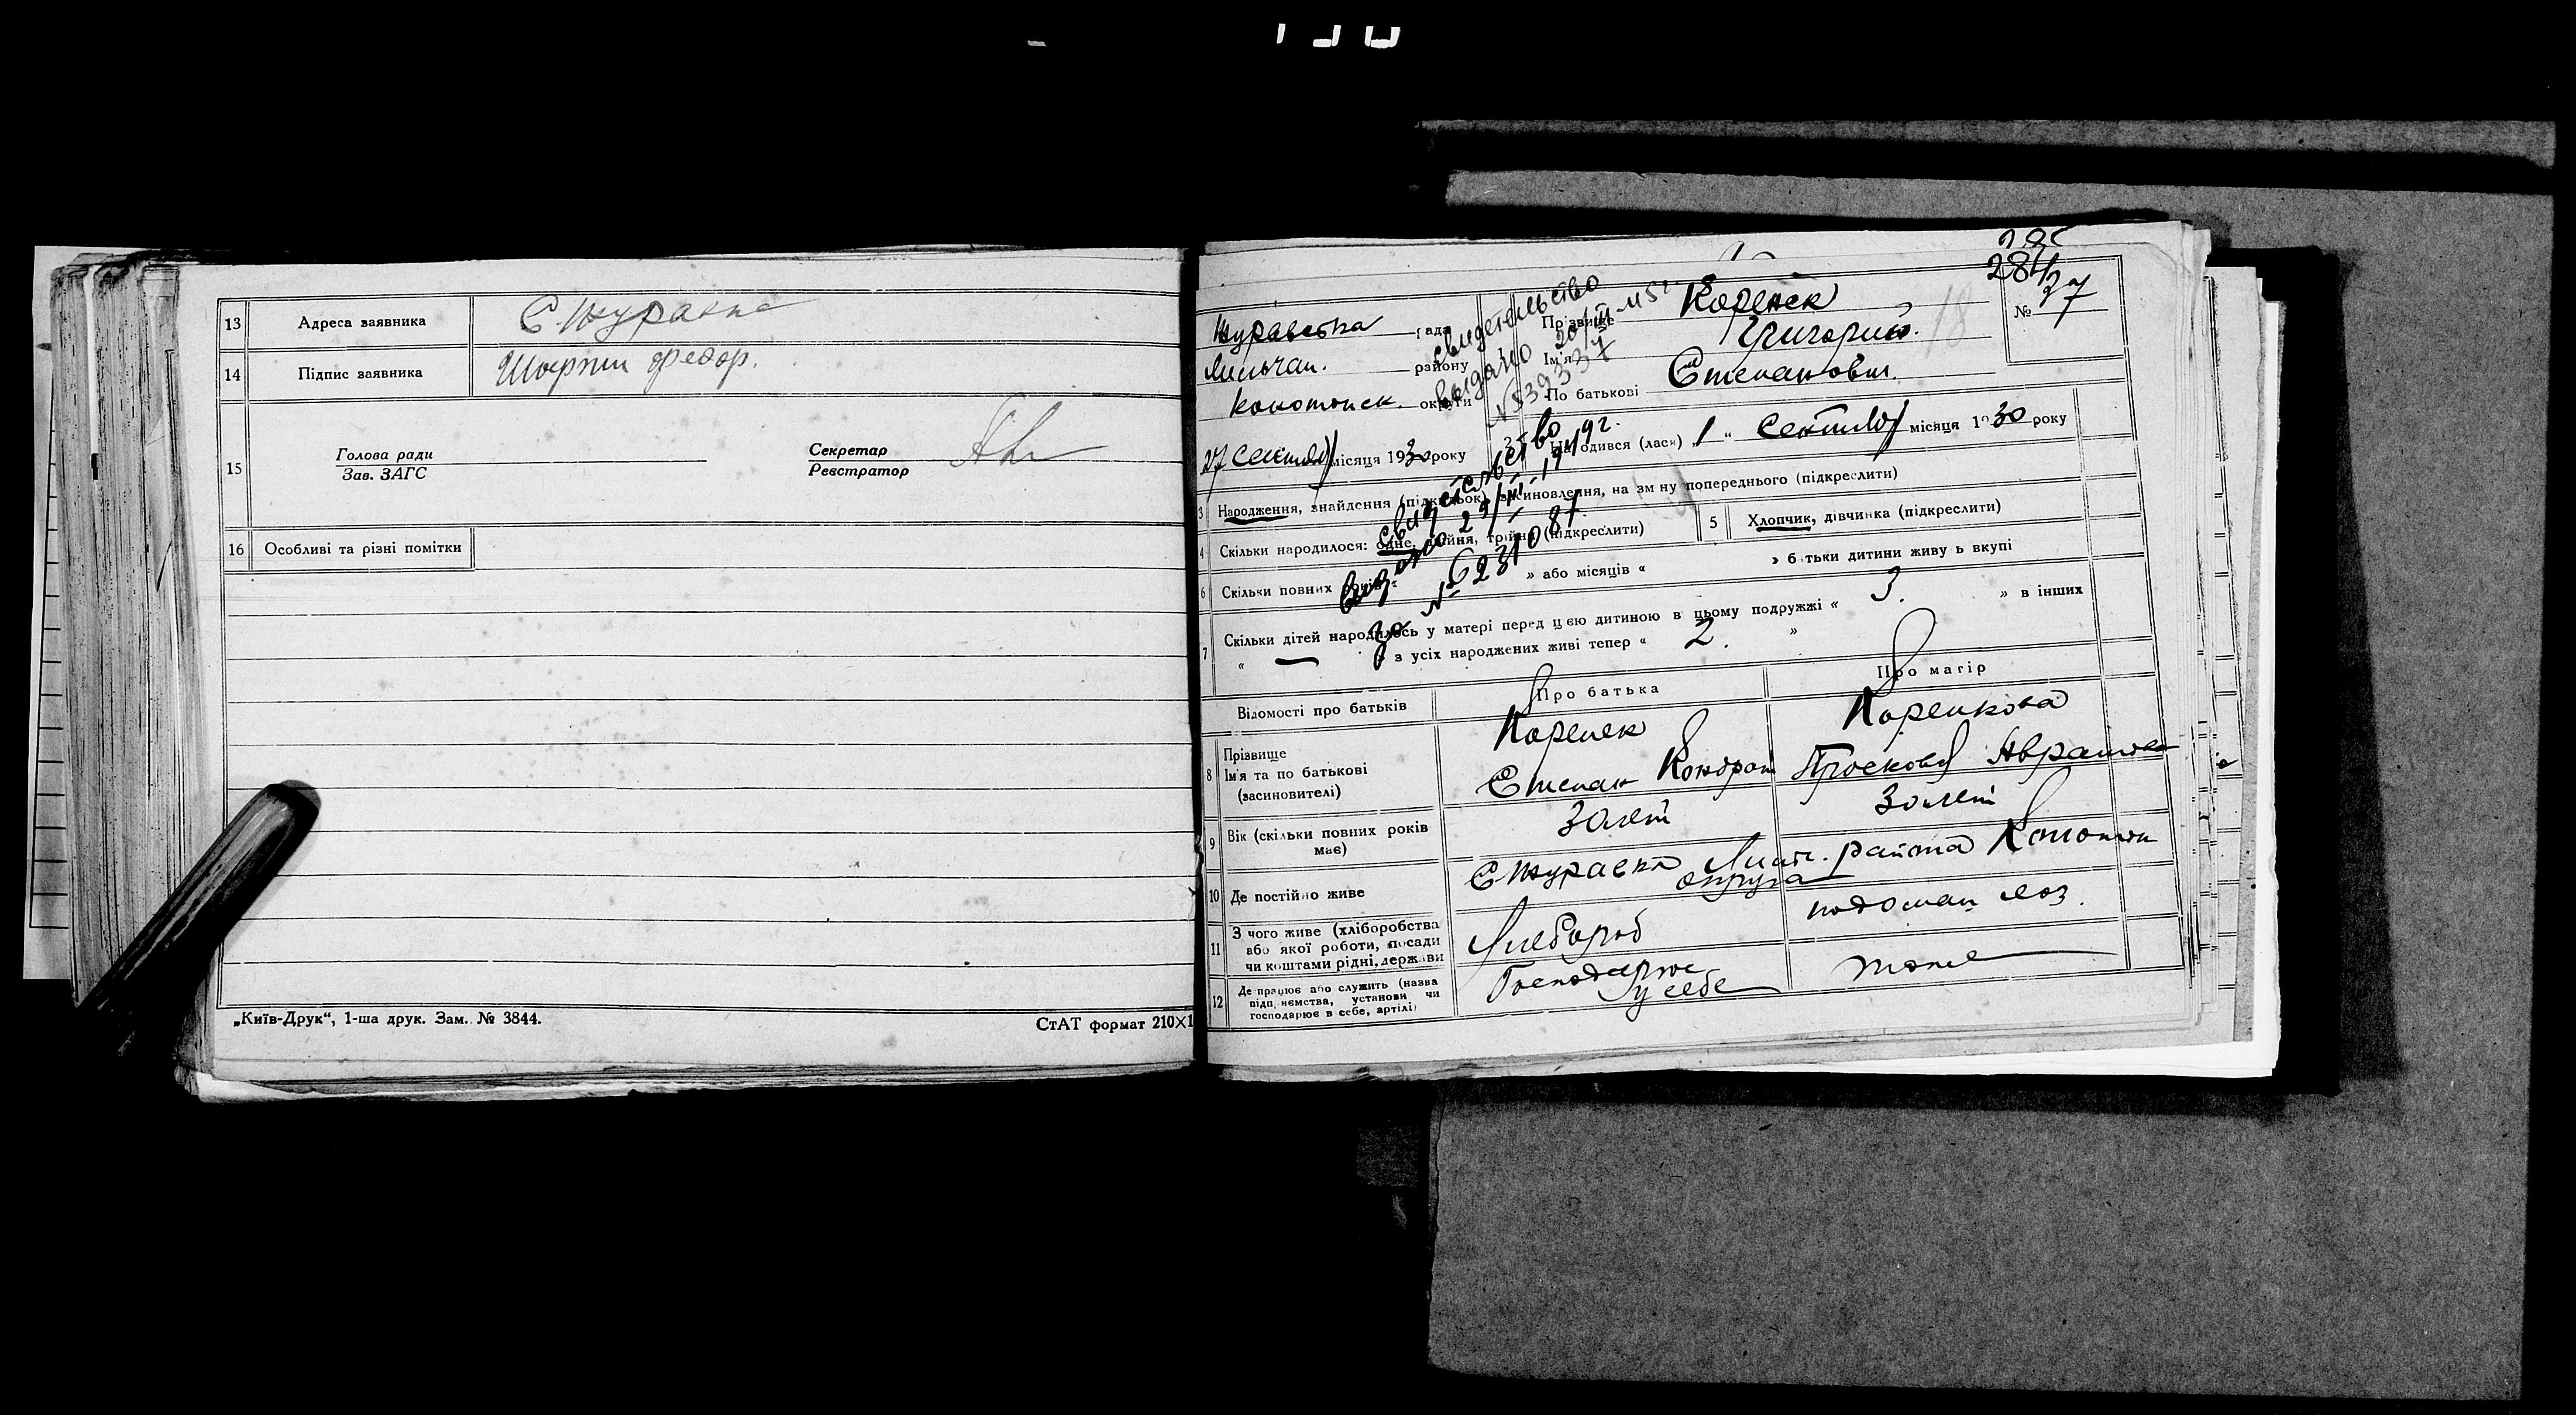 13 Адреса заявника С. Журавка
14 Підпис заявника федор.
15 Голова ради Секретар
Зав. ЗАГС Реєстратор
16 Особливі та різні помітки
„Київ-Друк“, 1-ша друк. Зам. № 3844.
СтАТ формат 210X1
284
№ 37
18
Журавська рада
району
Конотопск. округи
Прізвище Коренек
Ім'я Григорий.
По батькові Степанович
свидетельство
выдано
27 місяця 1930 року
Народився (лася) „1“ місяця 1930 року
свидетельство
выдано 29/III-1949г.
за № 6231081
3 Народження, знайдення (підкидьок) засиновлення, на зміну попереднього (підкреслити)
4 Скільки народилося: одне, двійня, трійня (підкреслити)
5 Хлопчик, дівчинка (підкреслити)
6 Скільки повних років « » або місяців « » батьки дитини живуть вкупі
7 Скільки дітей народилось у матері перед цією дитиною в цьому подружжі « 3. » в інших
« — » з усіх народжених живі тепер « 2. »
Відомості про батьків Про батька Про матір
8 Прізвище Коренек Коренкова
Ім'я та по батькові Степан Кондрат
(засиновителі)
9 Вік (скільки повних років має) 30 лет 30 лет
10 Де постійно живе С Журавка района
округа
11 З чого живе (хліборобства
або якої роботи, посади
чи коштами рідні, держави
Хлебороб
12 Де працює або служить (назва
підприємства, установи чи
господарює в себе, артілі)
Господарює
у себе
тоже